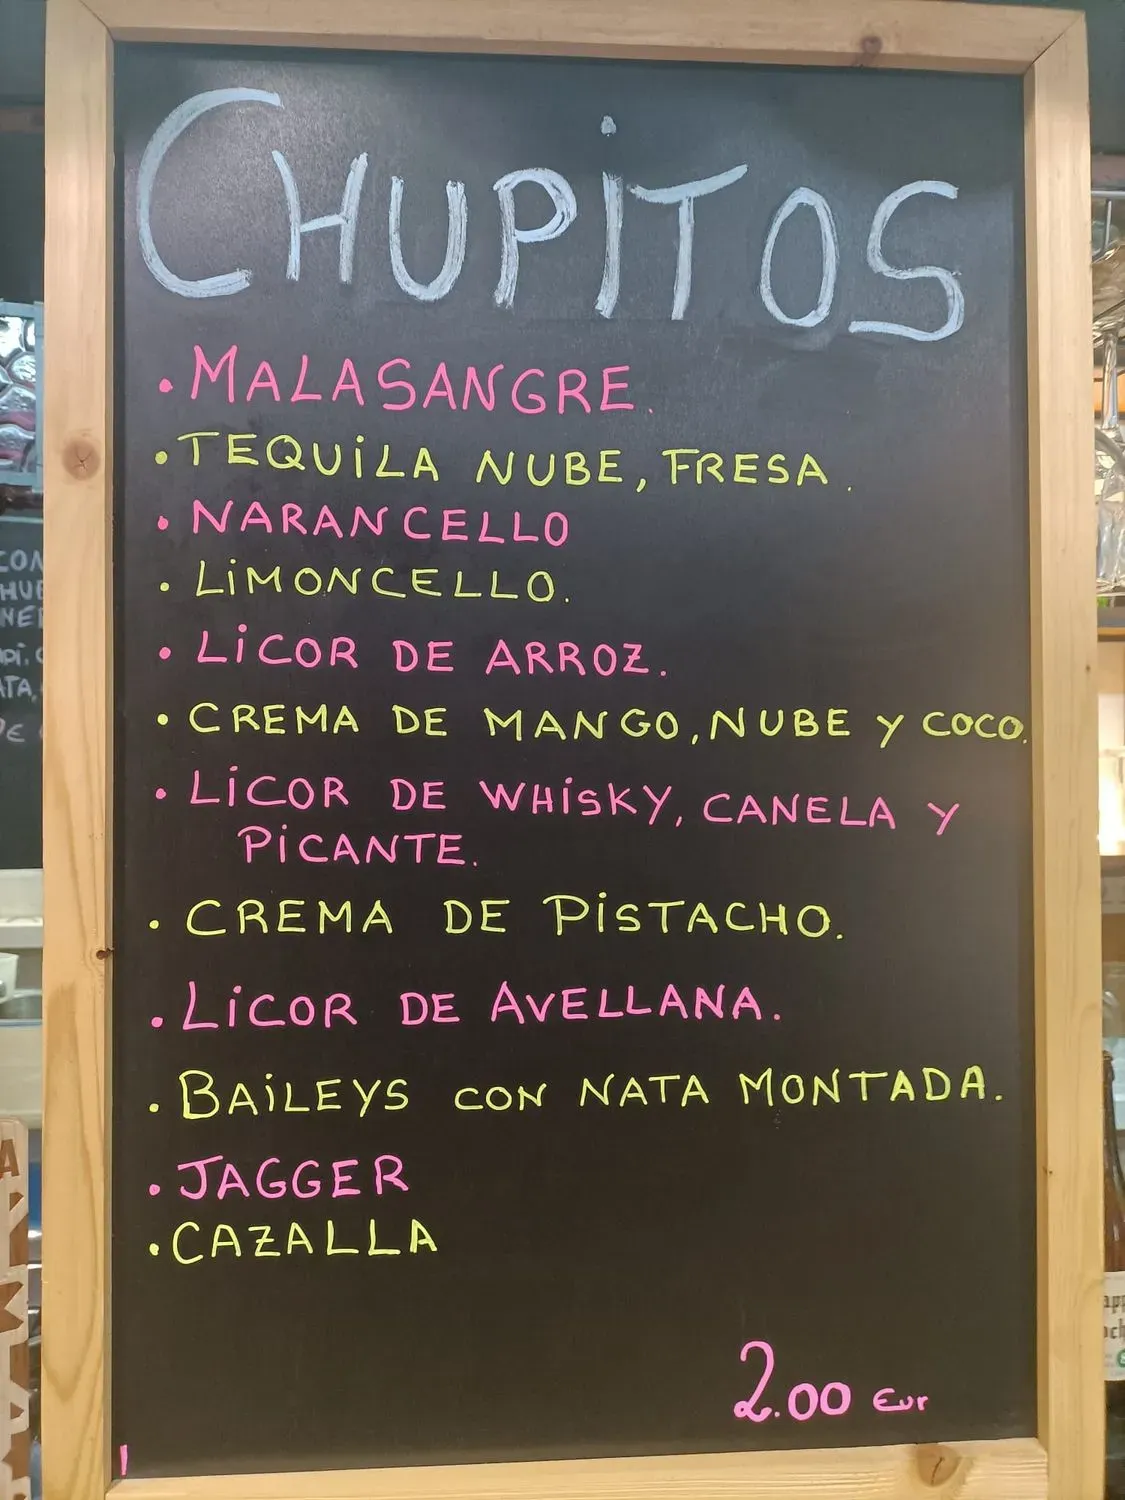 CHUPITOS
• MALASANGRE.
• TEQUILA NUBE, FRESA.
• NARANCELLO
• LIMONCELLO.
• LICOR DE ARROZ.
• CREMA DE MANGO, NUBE Y COCO.
• LICOR DE WHISKY, CANELA Y
PICANTE.
• CREMA DE PISTACHO.
• LICOR DE AVELLANA.
• BAILEYS CON NATA MONTADA.
• JAGGER
• CAZALLA
2.00 Eur